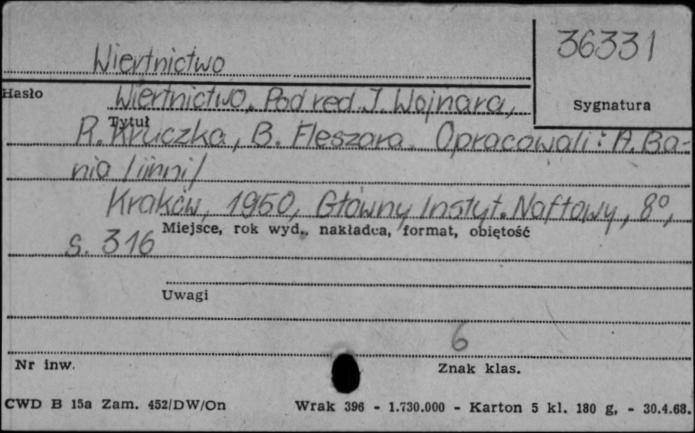 Wiertnictwo
36331
Hasło
Sygnatura
Wiertnictwo. Pod red. J. Wojnara,
Tytuł
R. Kruczka, B. Fleszara. Opracowali: A. Ba-
nia /i inni/
Kraków, 1950, Główny Instyt. Naftowy, 8°,
Miejsce, rok wyd., nakładca, format, objętość
s. 316
Uwagi
6
Nr inw.
Znak klas.
CWD B 15a Zam. 452/DW/On Wrak 396 - 1.730.000 - Karton 5 kl. 180 g. - 30.4.68.